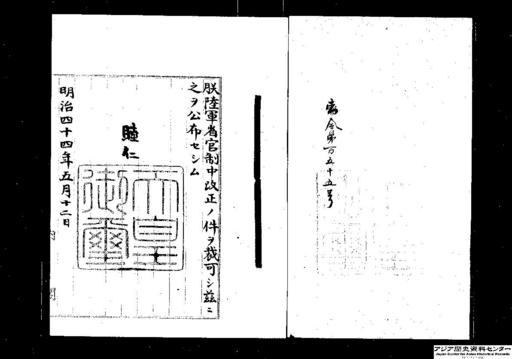 勅令第百五十五号
朕陸軍省官制中改正ノ件ヲ裁可シ茲ニ
之ヲ公布セシム
睦仁
天皇
御璽
明治四十四年五月十二日
アジア歴史資料センター
Japan Center for Asian Historical Records